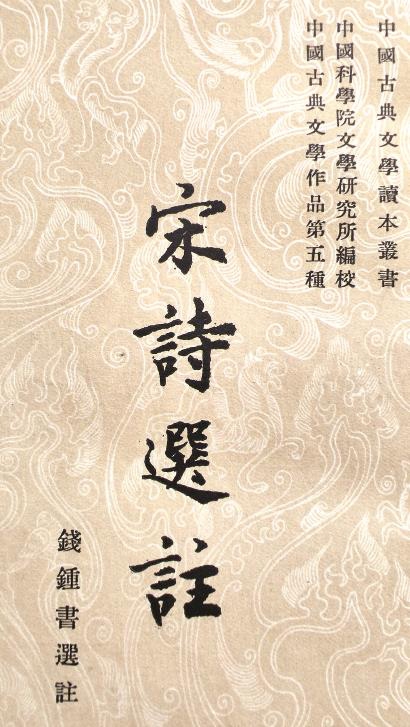 中國古典文學讀本叢書
中國科學院文學研究所編校
中國古典文學作品第五種
宋詩選註
錢鍾書選註